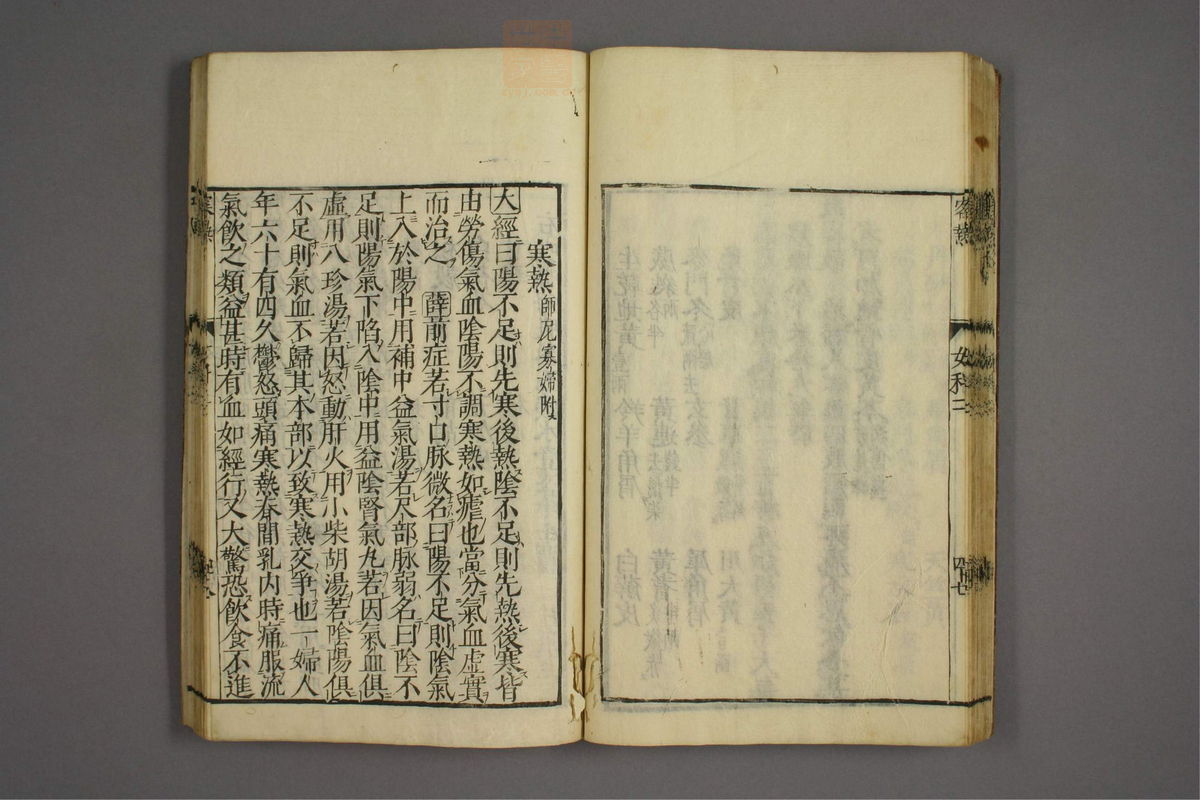 客熱
女科二
四十七
寒熱師尼寡婦附
大經曰陽不足則先寒後熱陰不足則先熱後寒皆
由勞傷氣血陰陽不調寒熱如瘧也當分氣血虛實
而治之薛前症若寸口脉微名曰陽不足則陰氣
上入於陽中用補中益氣湯若尺部脉弱名曰陰不
足則陽氣下陷入陰中用益陰腎氣丸若因氣血俱
虛用八珍湯若因怒動肝火用小柴胡湯若陰陽俱
不足則氣血不歸其本部以致寒熱交爭也一婦人
年六十有四久鬱怒頭痛寒熱春間乳內時痛服流
氣飲之類益甚時有血如經行又大驚恐飲食不進